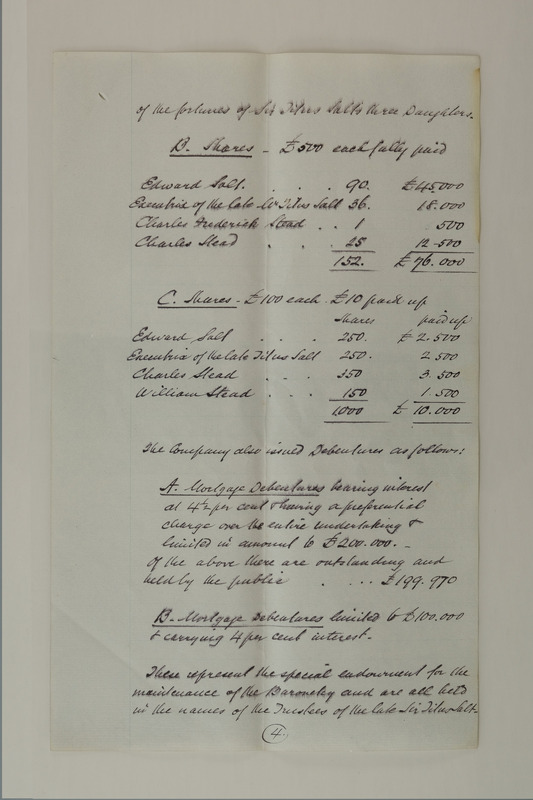 of the fortunes of Sir Titus Salt's three Daughters.
B. Shares - £500 each fully paid
Edward Salt. . . . 90. £45000
Executrix of the late Mr Titus Salt 36. 18.000
Charles Frederick Stead . . 1 500
Charles Stead . . . 25 12.500
152. £76.000
C. Shares - £100 each - £10 paid up
Shares paid up
Edward Salt . . . 250. £2.500
Executrix of the late Titus Salt 250. 2.500
Charles Stead . . . 350 3.500
William Stead . . . 150 1.500
1000 £10.000
The Company also issued Debentures as follows:
A. Mortgage Debentures bearing interest
at 4½ per cent & having a preferential
charge over the entire undertaking &
limited in amount to £200.000. -
Of the above there are outstanding and
held by the public . ... £199.970
B. Mortgage Debentures limited to £100.000
& carrying 4 per cent interest -
These represent the special endowment for the
maintenance of the Baronetcy and are all held
in the names of the Trustees of the late Sir Titus Salt -
4.